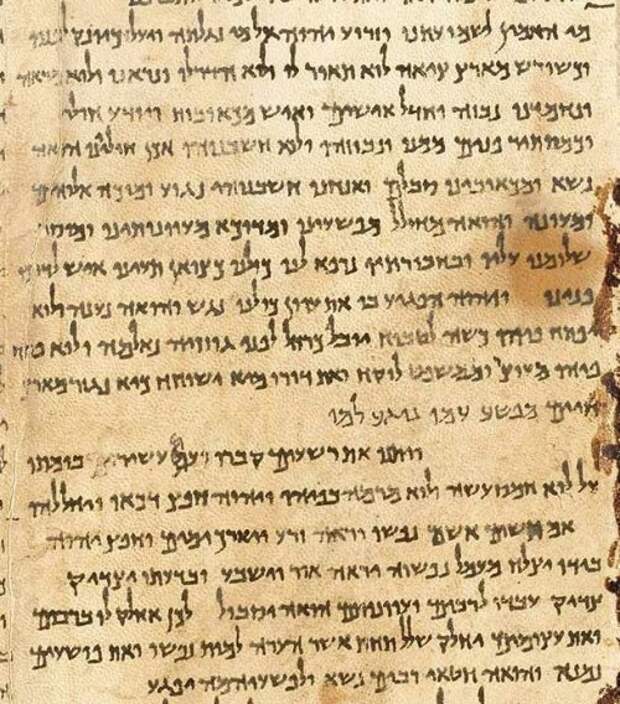 מי האמין לשמועתנו וזרוע יהוה אל מי נגלתה ויעל כיונק לפניו
וכשורש מארץ ציאה לוא תואר לו ולוא הדר לו ונראנו ולוא מראה
ונחמדנו נבזה וחדל אישים ואיש מכאובות ויודע חולי
וכמסתר פנים ממנו ונבוזהו ולוא חשבנוהו אכן חוליינו הואה
נשא ומכאובינו סבלם ואנחנו חשבנוהי נגוע ומוכה אלוהים
ומעונה והואה מחולל מפשעינו ומדוכא מעוונותינו ומוסר
שלומנו עליו ובחבורתיו נרפא לנו כולנו כצואן תעינו איש לדרכו
פנינו ויהוה הפגיע בו את עוון כולנו נגש והואה נענה ולוא
יפתח פיהו כשה לטבוח יובל כרחל לפני גוזזיה נאלמה ולוא פתח
פיהו מעוצר וממשפט לוקח ואת דורו מיא ישוחח כיא נגזר מארץ
חיים מפשע עמו נוגע למו
ויתנו את רשעים קברו ועם עשיר בומתו
על לוא חמס עשה ולוא מרמה בפיהו ויהוה חפץ דכאו ויחללהו
אם תשים אשם נפשו יראה זרע ויארך ימים וחפץ יהוה
בידו יצלח מעמל נפשוה יראה אור וישבע ובדעתו יצדיק
צדיק עבדו לרבים ועוונותם הואה יסבול לכן אחלק לו ברבים
ואת עצומים יחלק שלל תחת אשר הערה למות נפשו ואת פושעים
נמנה והואה חטאי רבים נשא ולפשעיהמה יפגע